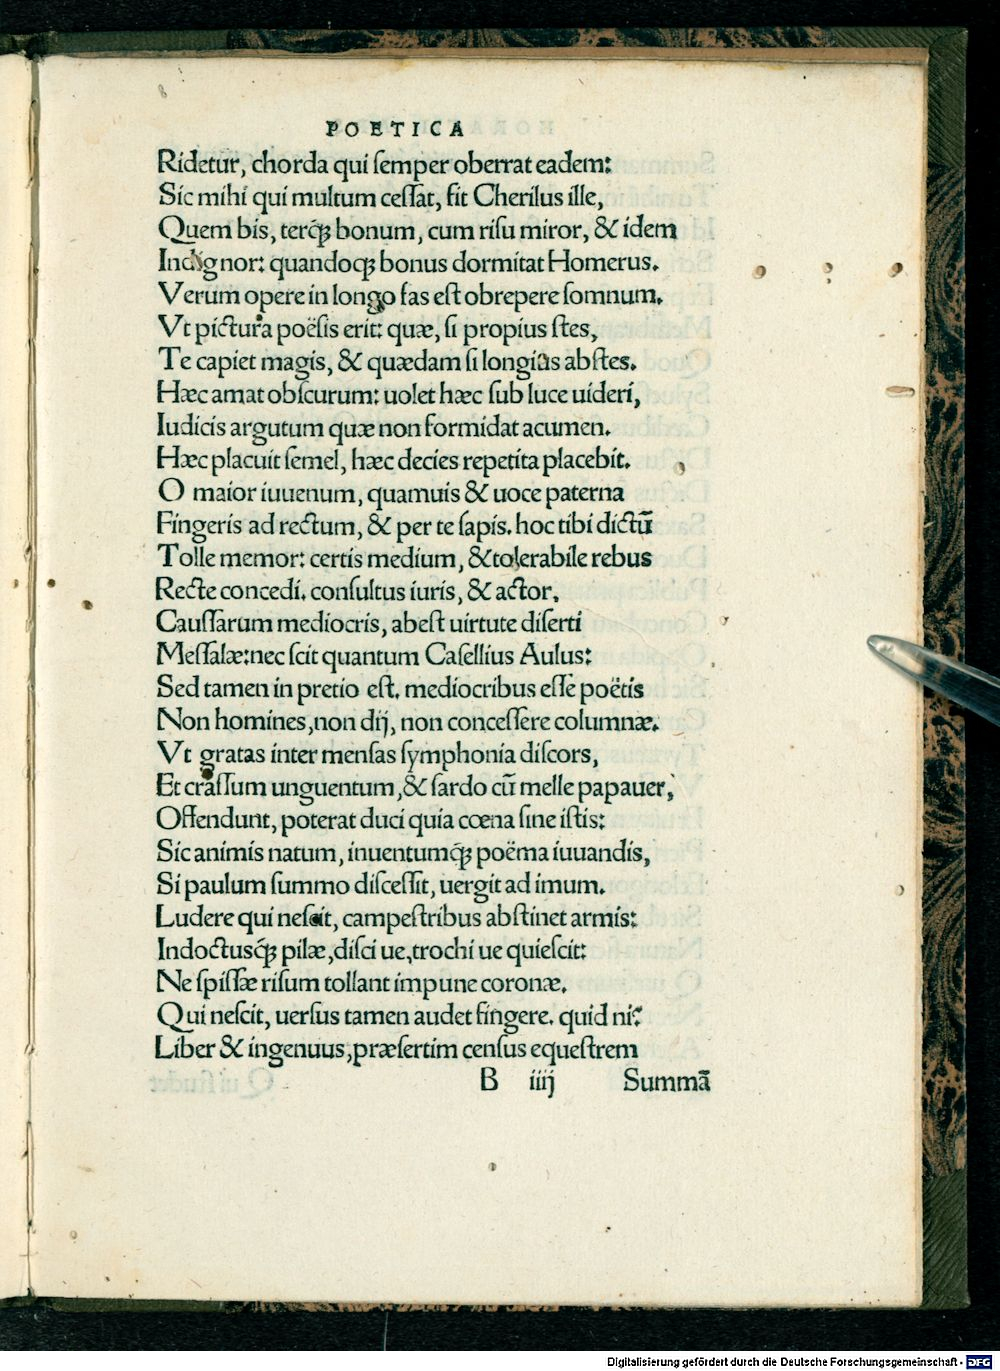 POETICA
Ridetur, chorda qui ſemper oberrat eadem:
Sic mihi qui multum ceſſat, fit Cherilus ille,
Quem bis, terq́ꝫ bonum, cum riſu miror, & idem
Indignor: quandoqꝫ bonus dormitat Homerus.
Verum opere in longo fas eſt obrepere ſomnum.
Vt pictura poëſis erit: quæ, ſi propius ſtes,
Te capiet magis, & quædam ſi longius abſtes.
Hæc amat obſcurum: uolet hæc ſub luce uideri,
Iudicis argutum quæ non formidat acumen.
Hæc placuit ſemel, hæc decies repetita placebit.
O maior iuuenum, quamuis & uoce paterna
Fingeris ad rectum, & per te ſapis. hoc tibi dictū
Tolle memor: certis medium, & tolerabile rebus
Recte concedi. conſultus iuris, & actor.
Cauſſarum mediocris, abeſt uirtute diſerti
Meſſalæ: nec ſcit quantum Caſellius Aulus:
Sed tamen in pretio eſt. mediocribus eſſe poëtis
Non homines, non dij, non conceſſere columnæ.
Vt gratas inter menſas ſymphonia diſcors,
Et craſſum unguentum, & ſardo cū melle papauer,
Offendunt, poterat duci quia cœna ſine iſtis:
Sic animis natum, inuentumq́ꝫ poëma iuuandis,
Si paulum ſummo diſceſſit, uergit ad imum.
Ludere qui neſcit, campeſtribus abſtinet armis:
Indoctusq́ꝫ pilæ, diſci ue, trochi ue quieſcit:
Ne ſpiſſæ riſum tollant impune coronæ.
Qui neſcit, uerſus tamen audet fingere. quid ni?
Liber & ingenuus, præſertim cenſus equeſtrem
B iiij Summā
Digitalisierung gefördert durch die Deutsche Forschungsgemeinschaft - DFG